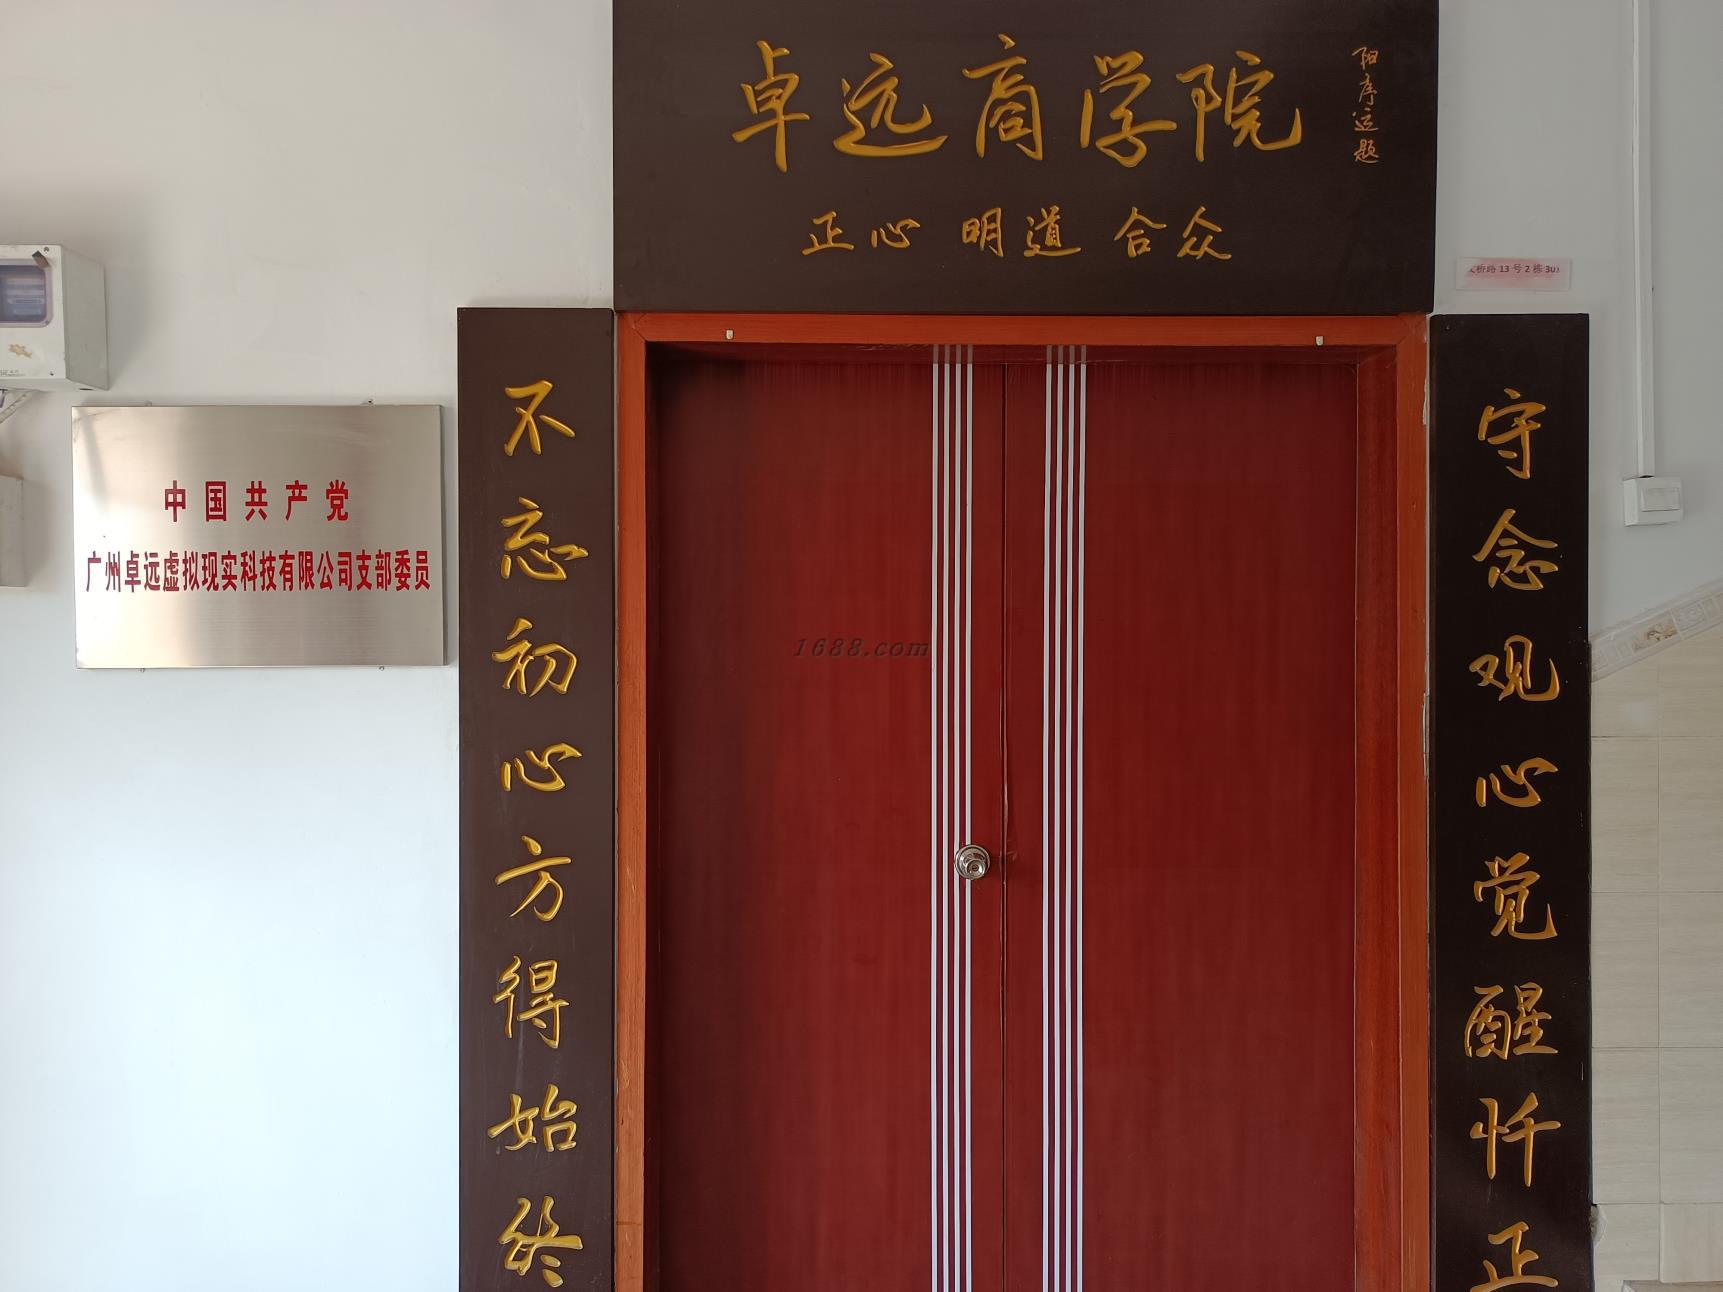 卓远商学院
正心 明道 合众
中国共产党
广州卓远虚拟现实科技有限公司支部委员
不忘初心方得始终
守念观心觉醒忏正
桥路13号2栋303
1688.com